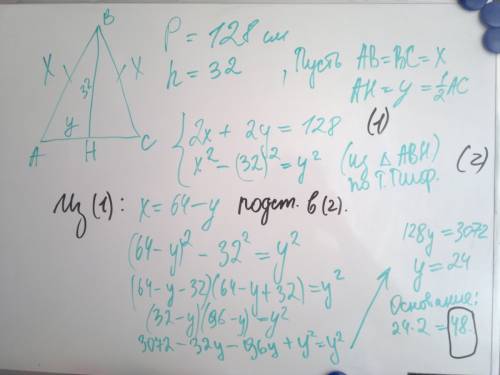 B
P = 128 см
h = 32 , Пусть AB = BC = X
AH = y = ½AC
X
X
32
y
A
H
C
{ 2x + 2y = 128 (1)
x² - (32)² = y² (из △ ABH) (2)
по т. Пиф.
Из (1): x = 64 - y подст. в (2).
(64 - y)² - 32² = y²
(64 - y - 32)(64 - y + 32) = y²
(32 - y)(96 - y) = y²
3072 - 32y - 96y + y² = y²
128y = 3072
y = 24
Основание:
24 · 2 = 48.